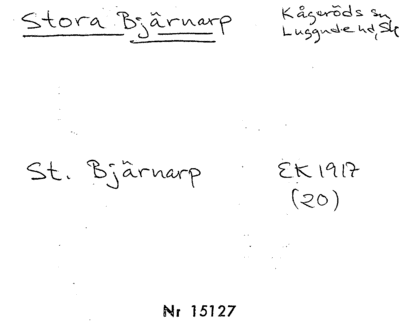 Stora Bjärnarp
Kågeröds sn
Luggude hd, Sk
St. Bjärnarp
EK 1917
(20)
Nr 15127